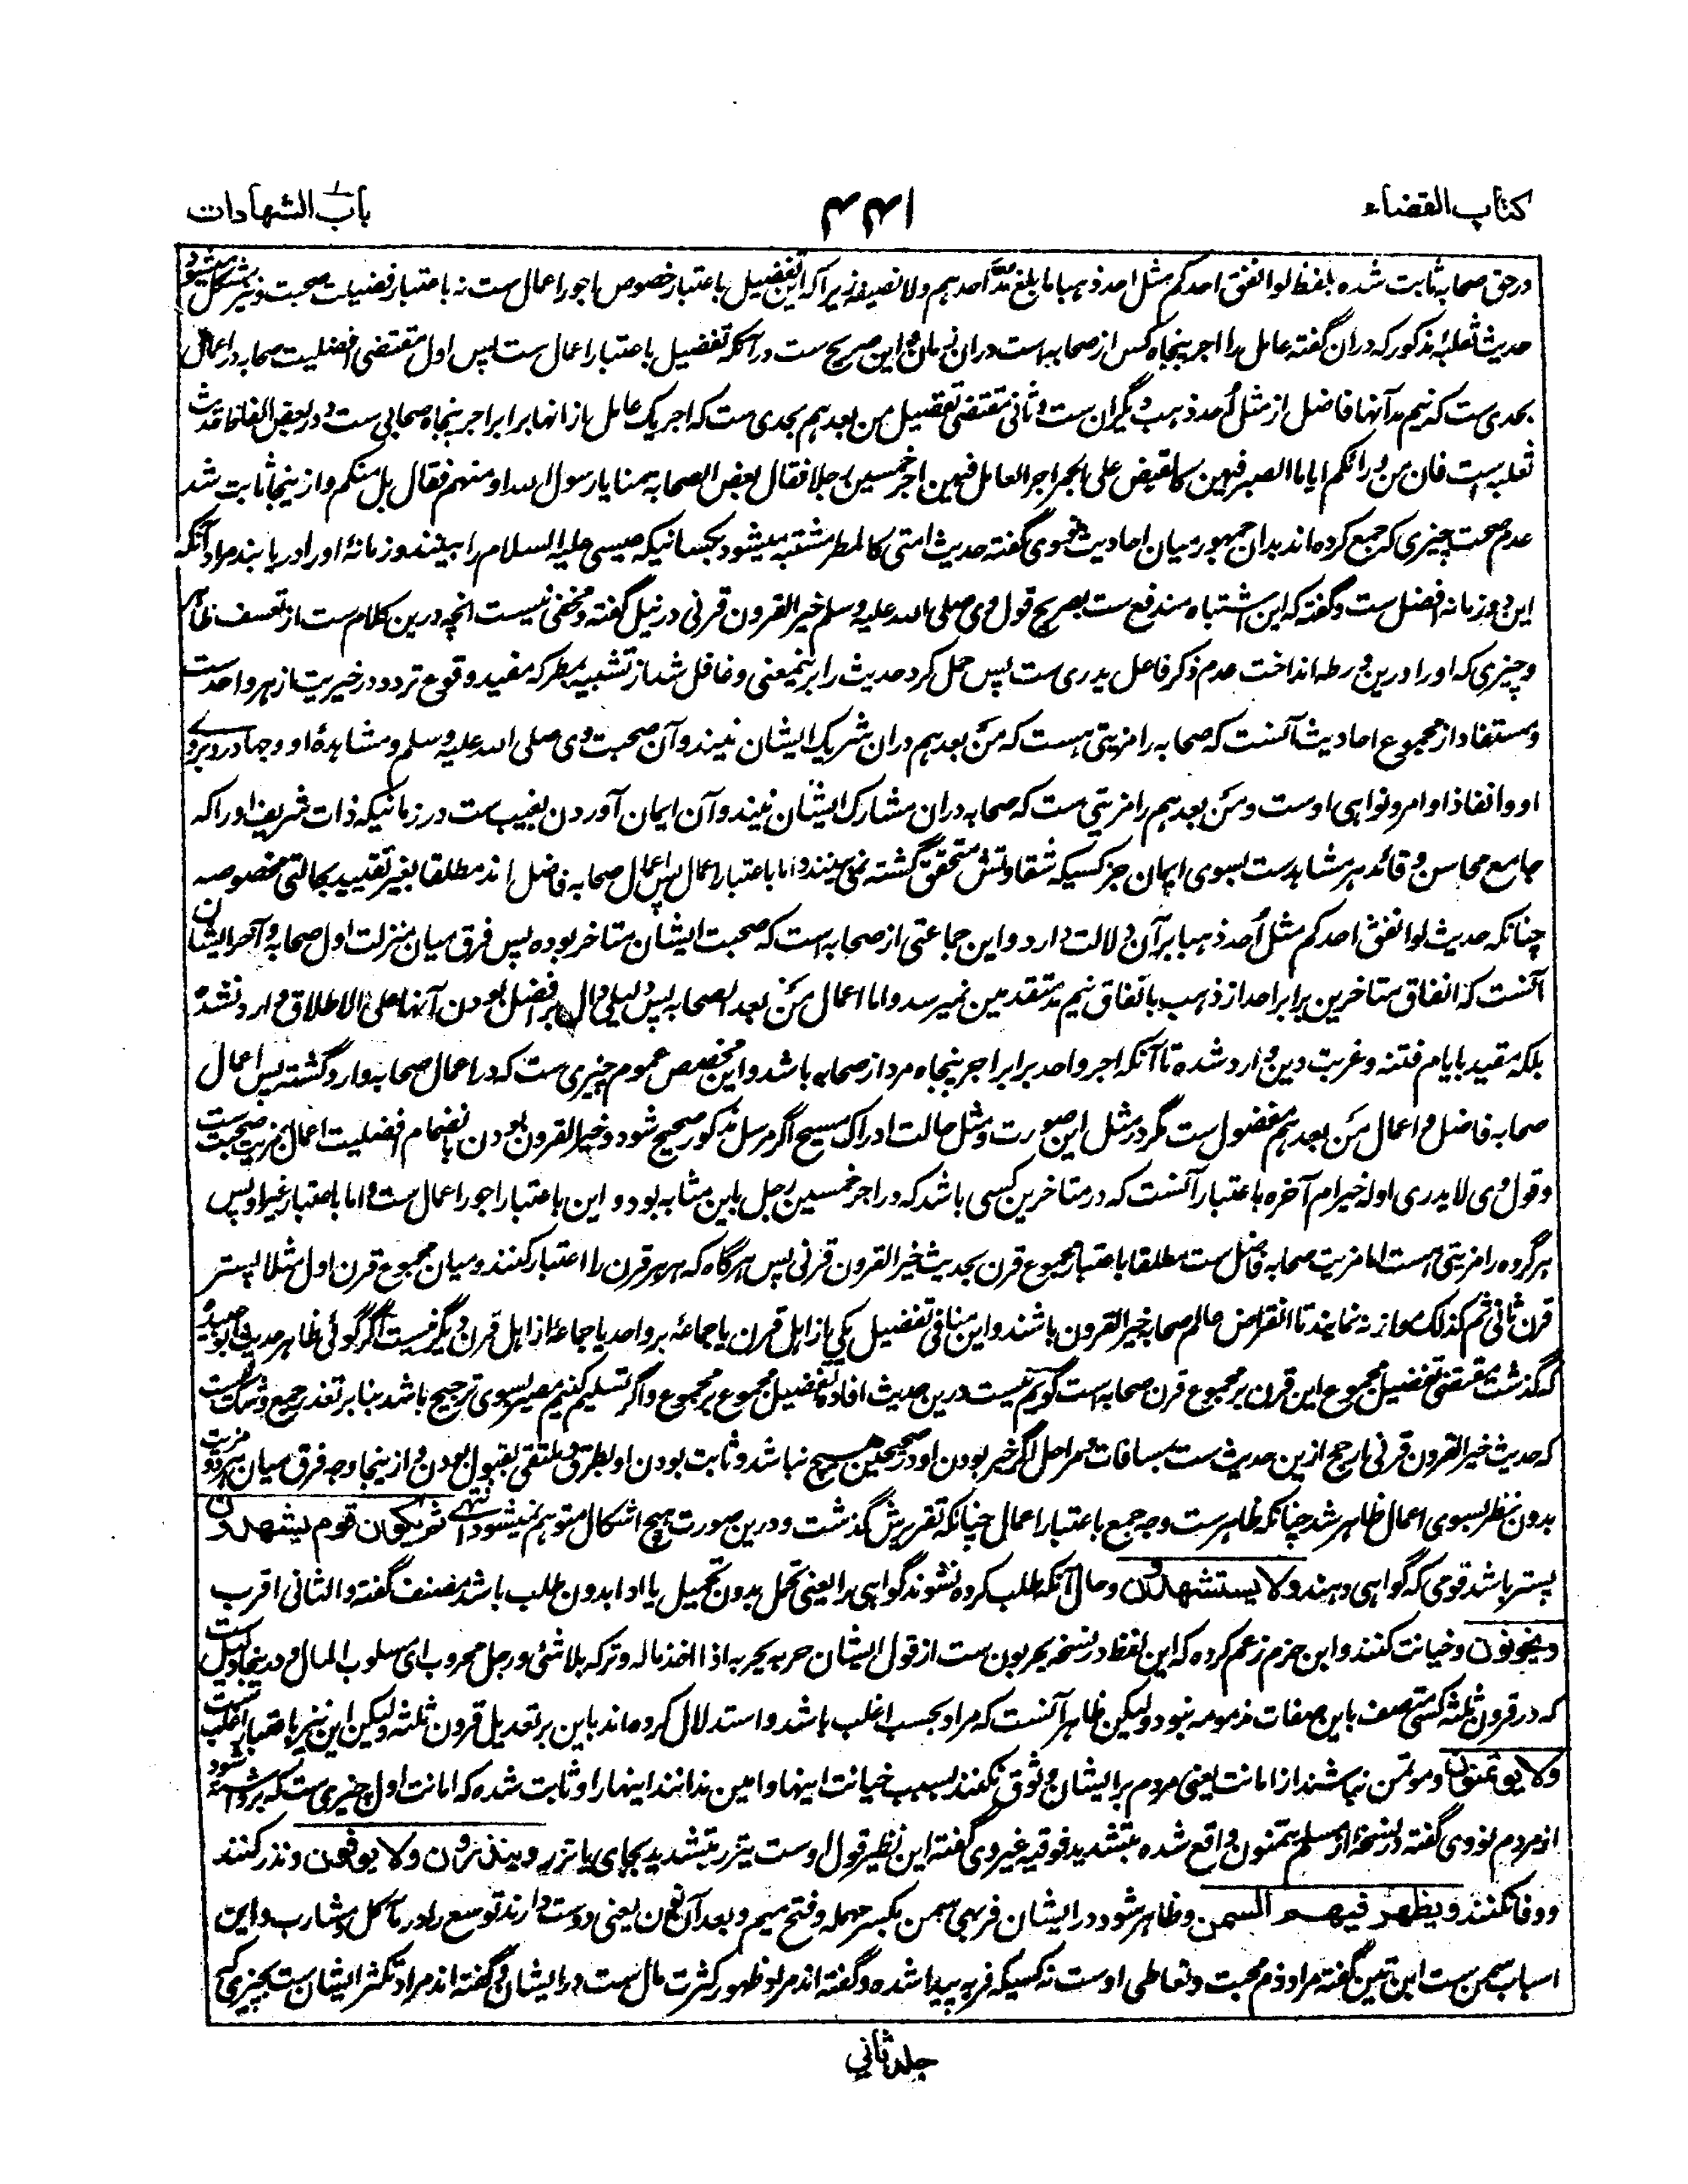 کتاب القضاء
۴۴۱
باب الشهادات
در حق صحابه ثابت شده بلفظ لو انفق احدکم مثل احد ذهبا ما بلغ مد احدهم ولا نصیفه زیرا که این تفضیل باعتبار خصوص اجور اعمال ست نه باعتبار فضیلت صحبت و نیز مشکل میشود
حدیث ثعلبه مذکور که دران گفته عامل را اجر پنجاه کس از صحابه است دران زمان و این صریح ست در آنکه تفضیل باعتبار اعمال ست پس اول مقتضی افضلیت صحابه در اعمال
بحدی ست که نیم مد آنها فاضل از مثل احد ذهب دیگران ست و ثانی مقتضی تفضیل من بعدهم بحدی ست که اجر یک عامل از انها برابر اجر پنجاه صحابی ست و در بعض الفاظ حدیث
ثعلبه است فان من ورائکم ایاما الصبر فیهن کالقبض علی الجمر اجر العامل فیهن اجر خمسین رجلا فقال بعض الصحابه منا یا رسول الله او منهم فقال بل منکم و ازینجا ثابت شد
عدم صحت چیزی که جمع کرده اند بدان جمهور میان احادیث نووی گفته حدیث امتی کالمطر مشتبه میشود بکسانیکه عیسی علیه السلام را ببینند و زمانهٔ او را دریابند مراد آنکه
این دو زمانه افضل ست و گفته که این اشتباه مندفع ست بصریح قول وی صلی الله علیه وسلم خیر القرون قرنی در نیل گفته و مخفی نیست انچه درین کلام ست از تعسف ظاهر
و چیزی که او را درین ورطه انداخت عدم ذکر فاعل یدری ست پس حمل کرد حدیث را برینمعنی و غافل شد از تشبیه بمطر که مفید وقوع تردد در خیریت از هر واحد ست
و مستفاد از مجموع احادیث آنست که صحابه را مزیتی هست که من بعدهم دران شریک ایشان نیند و آن صحبت وی صلی الله علیه وسلم و مشاهدهٔ او و جهاد در روبروی
او و انفاذ اوامر و نواهی اوست و من بعدهم را مزیتی ست که صحابه دران مشارک ایشان نیند و آن ایمان آوردن بغیب ست در زمانیکه ذات شریف او را که
جامع محاسن و قائد هر مشاهد ست بسوی ایمان جز کسیکه شقاوتش متحقق گشته نمی بینند و اما باعتبار اعمال پس اعمال صحابه فاضل اند مطلقا بغیر تقیید بحالتی مخصوصه
چنانکه حدیث لو انفق احدکم مثل احد ذهبا برآن دلالت دارد و این جماعتی از صحابه است که صحبت ایشان متاخر بوده پس فرق میان منزلت اول صحابه و آخر ایشان
آنست که انفاق متاخرین برابر احد از ذهب بانفاق نیم مد متقدمین نمیرسد و اما اعمال من بعد الصحابه پس دلیلی دال بر افضل بودن آنها علی الاطلاق وارد نشده
بلکه مقید بایام فتنه و غربت دین وارد شده تا آنکه اجر واحد برابر اجر پنجاه مرد از صحابه باشد و این مخصص عموم چیزی ست که در اعمال صحابه وارد گشته پس اعمال
صحابه فاضل و اعمال من بعدهم مفضول ست مگر در مثل این صورت و مثل حالت ادراک مسیح اگر مرسل مذکور صحیح شود و خیر القرون بودن بانضمام افضلیت اعمال بمزیت صحبت ست
و قول وی لا یدری اوله خیر ام آخره باعتبار آنست که در متاخرین کسی باشد که در اجر خمسین رجل باین مثابه بود و این باعتبار اجور اعمال ست و اما باعتبار غیر او پس
هر گروه را مزیتی هست اما مزیت صحابه فاضل ست مطلقا باعتبار مجموع قرن بحدیث خیر القرون قرنی پس هرگاه که هر هر قرن را اعتبار کنند و میان مجموع قرن اول مثلا پستر
قرن ثانی ثم کذلک موازنه نمایند تا انقراض عالم صحابه خیر القرون باشند و این منافی تفضیل یکی از اهل قرن یا جماعه بر واحد یا جماعه از اهل قرن دیگر نیست اگر گوئی ظاهر حدیث ابو عبیده
که گذشت مقتضی تفضیل مجموع این قرن بر مجموع قرن صحابه است گویم نیست درین حدیث افاده تفضیل مجموع بر مجموع و اگر تسلیم کنیم مصیر بسوی ترجیح باشد بنابر تعذر جمع و شک نیست
که حدیث خیر القرون قرنی راجح ازین حدیث ست بمسافات و مراحل اگر خیر بودن او در صحیحین هیچ نباشد و ثابت بودن او بطرق و ملتقی بقبول بودن و ازینجا وجه فرق میان هر دو مزیت
بدون نظر بسوی اعمال ظاهر شد چنانکه ظاهر ست وجه جمع باعتبار اعمال چنانکه تقریرش گذشت و درین صورت هیچ اشکال متوهم نمیشود انتهی ثم یکون قوم یشهدون
پستر باشد قومی که گواهی دهند ولا یستشهدون و حال آنکه طلب کرده نشوند گواهی را یعنی تحمل بدون تحمیل یا ادا بدون طلب باشد مصنف گفته و الثانی اقرب
ویخونون و خیانت کنند و ابن حزم زعم کرده که این لفظ در نسخه یحربون ست از قول ایشان حربه یحربه اذا اخذ ماله و ترکه بلا شئی و رجل محروب ای مسلوب المال و درینجا دلیل ست
که در قرون ثلثه کسی متصف باین صفات مذمومه نبود ولیکن ظاهر آنست که مراد بحسب اغلب باشد و استدلال کرده اند باین بر تعدیل قرون ثلثه ولیکن این نیز باعتبار اغلب ست
ولا یؤتمنون و موتمن نباشند از امانت یعنی مردم بر ایشان وثوق نکنند بسبب خیانت اینها و امین ندانند اینها را و ثابت شده که امانت اول چیزی ست که برداشته شود
از مردم نووی گفته در نسخه از مسلم یتمنون واقع شده بتشدید فوقیه غیر وی گفته این نظیر قول اوست یتزر بتشدید بجای یاتزر وینذرون ولا یوفون و نذر کنند
و وفا نکنند ویظهر فیهم السمن و ظاهر شود در ایشان فربهی سمن بکسر مهمله و فتح میم و بعد آن نون یعنی دوست دارند توسع را در مآکل و مشارب و این
اسباب سمن ست ابن تین گفته مراد ذم محبت و تعاطی اوست نه کسیکه فربه پیدا شده و گفته اند مراد ظهور کثرت مال ست در ایشان و گفته اند مراد تکثر ایشان ست بچیزی که
جلد ثانی